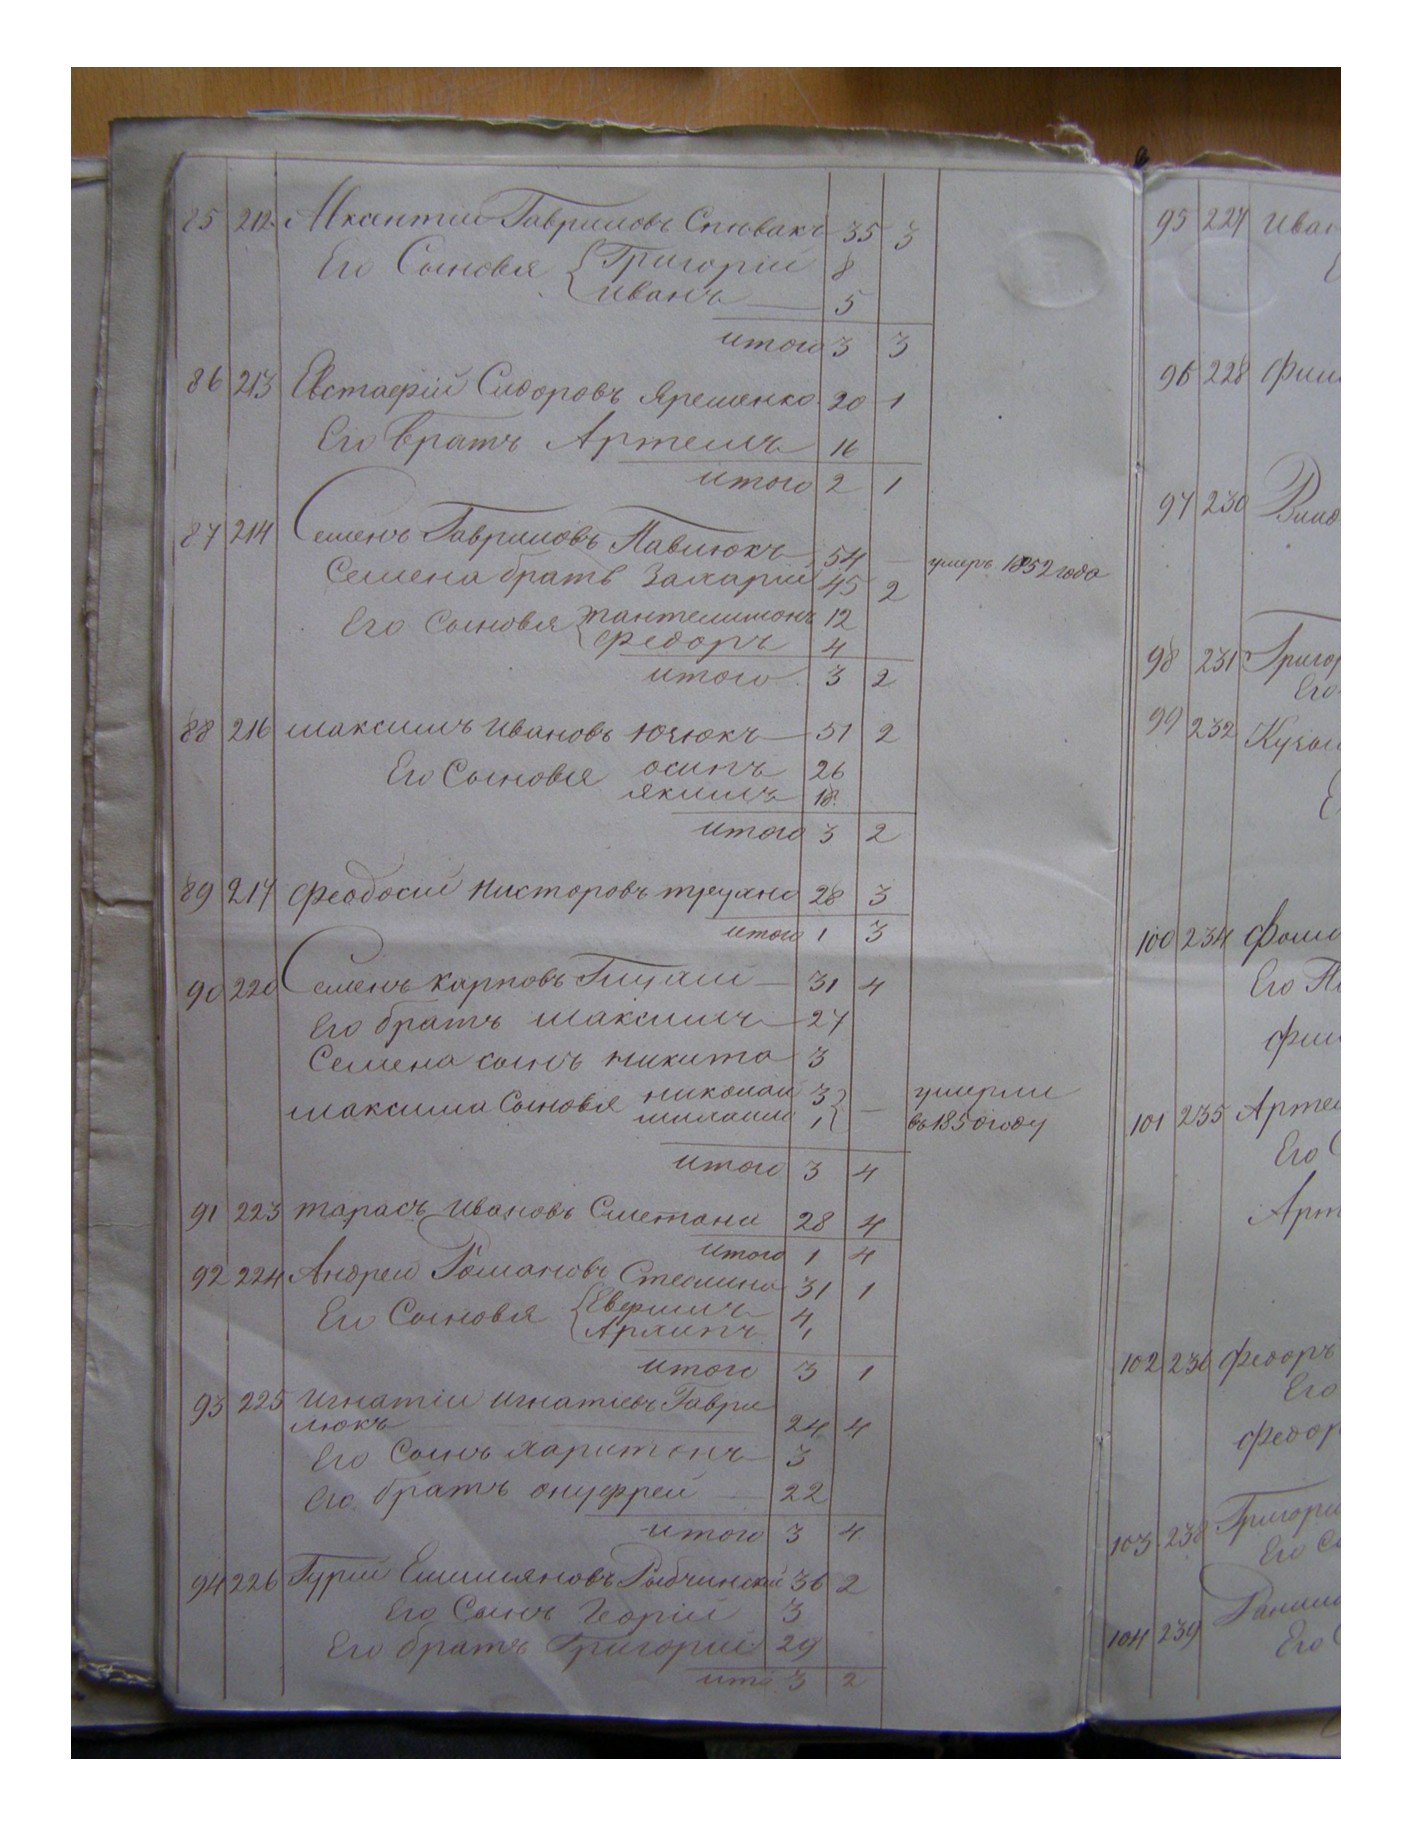 85 212 Аксентий Гаврилов Спивакъ 35 3
Его Сыновья Григорій 8
Иванъ 5
итого 3 3
86 213 Евстафій Сидоровъ Ярешенко 20 1
Его братъ Артемъ 16
итого 2 1
87 214 Семенъ Гавриловъ Павлюкъ 54 — умеръ 1852 года
Семена братъ Захарій 45 2
Его Сыновья Пантелимонъ 12
Федоръ 4
итого 3 2
88 216 Максимъ Ивановъ 51 2
Его Сыновья осипъ 26
якимъ 18
итого 3 2
89 217 Феодосий 28 3
итого 1 3
90 220 Семенъ Карповъ 31 4
Его братъ Максимъ 27
Семена сынъ Никита 3
Максима Сыновья николай 3 — умерли
михаило 1 въ 1850 году
итого 3 4
91 223 Тарасъ Ивановъ Сметана 28 4
итого 1 4
92 224 Андрей Романовъ 31 1
Его Сыновья 4
Архипъ 1
итого 3 1
93 225 Игнатій Игнатьевъ Гаври
люкъ 24 4
Его Сынъ Харитонъ 3
Его братъ Онуфрей 22
итого 3 4
94 226 Гурій Емильяновъ Рыбчинскій 36 2
Его Сынъ Георгій 3
Его братъ Григорій 29
ито 3 2
95 227 Иван
96 228 Фили
97 230
98 231 Григор
Его
99 232
100 234 Фоми
Его
Фили
101 235 Артем
Его
Арт
102 236 Федоръ
Его
Федор
103 238 Григори
Его
104 239 Данил
Его